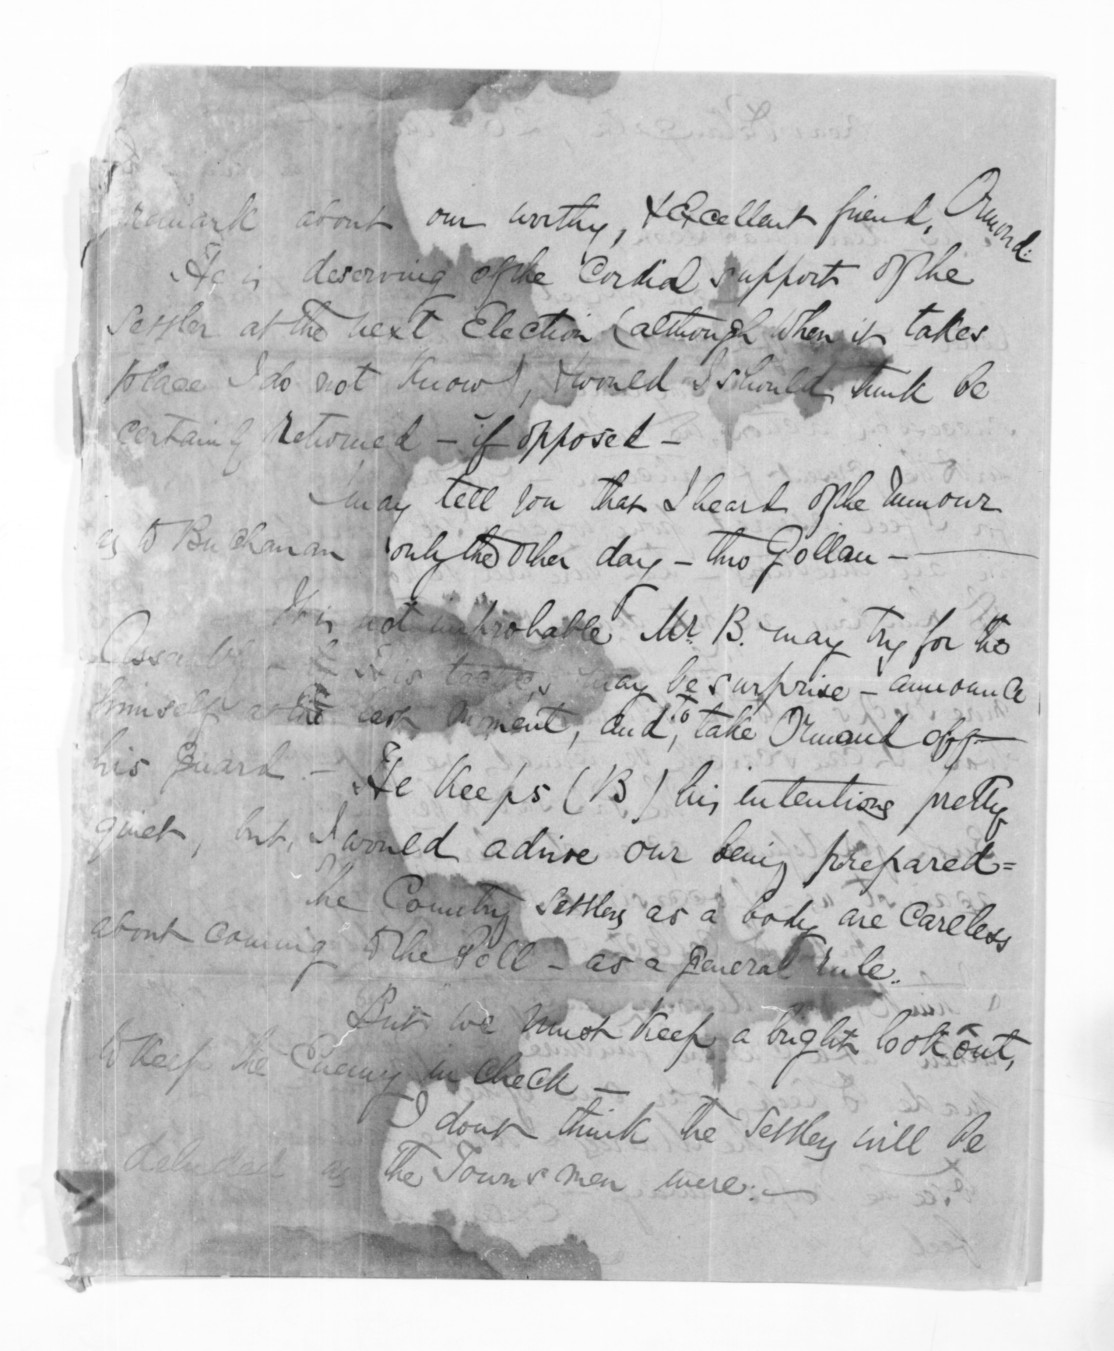 remark about our worthy, & excellent friend, Ormond:
He is deserving of the cordial support of the
Settler at the next Election (although when it takes
place I do not know), & would I should think be
certainly returned – if opposed –
I may tell you that I heard of the rumour
as to Buchanan only the other day – thro Gollan –
It is not improbable Mr. B. may try for the
Assembly – & his tactics may be surprise – announce
himself at the last moment, and, to take Ormond off
his guard. – He keeps (B) his intentions pretty
quiet, but, I would advise our being prepared =
The Country settlers as a body are careless
about coming to the Poll – as a general rule.
But we must keep a bright look out,
to keep the Enemy in check –
I dont think the settlers will be
deluded as the Townsmen were: –